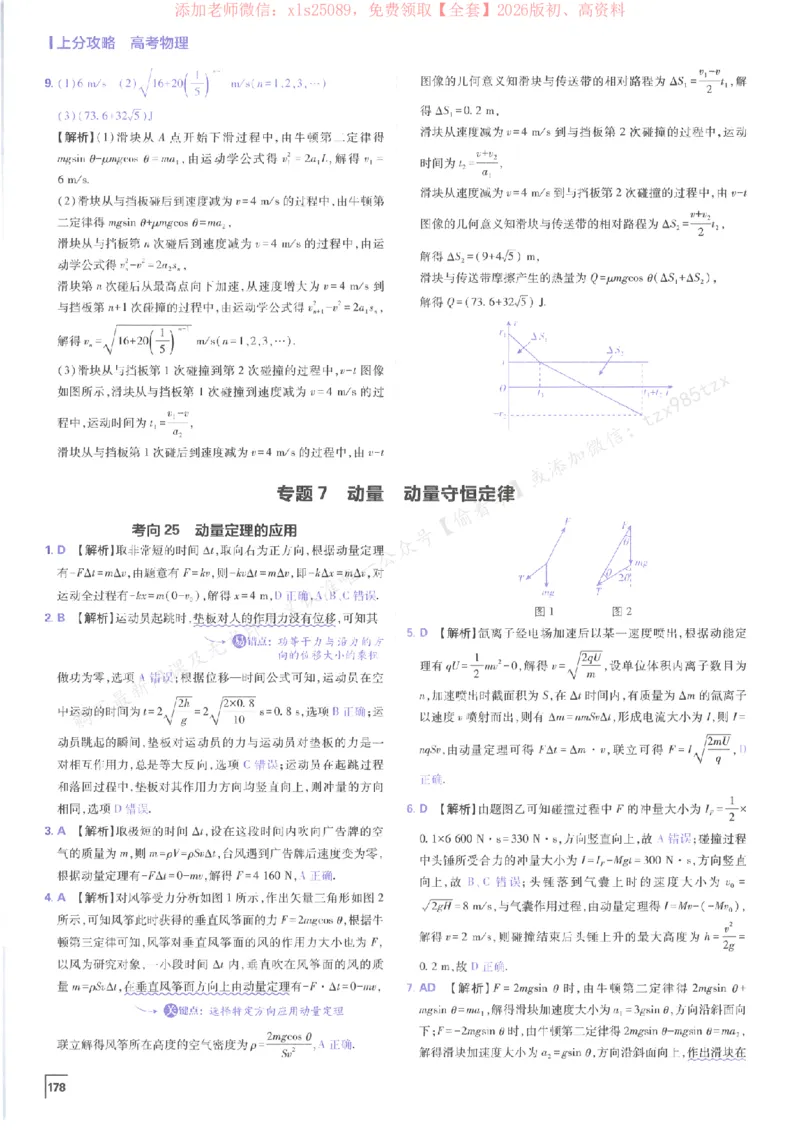 添加老师微信：xls25089，免费领取【全套】2026版初、高资料
上分攻略 高考物理
9. (1)6 m/s (2)√(16+20(1/5)ⁿ⁻¹) m/s(n=1,2,3,…)
(3)(73.6+32√5)J
【解析】(1)滑块从 A 点开始下滑过程中,由牛顿第二定律得
mgsin θ-μmgcos θ=ma₁,由运动学公式得 v₁²=2a₁L,解得 v₁=
6 m/s.
(2)滑块从与挡板碰后到速度减为 v=4 m/s 的过程中,由牛顿第
二定律得 mgsin θ+μmgcos θ=ma₂,
滑块从与挡板第 n 次碰后到速度减为 v=4 m/s 的过程中,由运
动学公式得 vₙ²-v²=2a₂sₙ,
滑块第 n 次碰后从最高点向下加速,从速度增大为 v=4 m/s 到
与挡板第 n+1 次碰撞的过程中,由运动学公式得 vₙ₊₁²-v²=2a₁sₙ,
解得 vₙ=√(16+20(1/5)ⁿ⁻¹) m/s(n=1,2,3,…).
(3)滑块从与挡板第 1 次碰撞到第 2 次碰撞的过程中,v-t 图像
如图所示,滑块从与挡板第 1 次碰撞到速度减为 v=4 m/s 的过
程中,运动时间为 t₁=(v₁-v)/a₂,
滑块从与挡板第 1 次碰后到速度减为 v=4 m/s 的过程中,由 v-t
图像的几何意义知滑块与传送带的相对路程为 ΔS₁=(v₁-v)/2 t₁,解
得 ΔS₁=0.2 m,
滑块从速度减为 v=4 m/s 到与挡板第 2 次碰撞的过程中,运动
时间为 t₂=(v+v₂)/a₁,
滑块从速度减为 v=4 m/s 到与挡板第 2 次碰撞的过程中,由 v-t
图像的几何意义知滑块与传送带的相对路程为 ΔS₂=(v+v₂)/2 t₂,
解得 ΔS₂=(9+4√5) m,
滑块与传送带摩擦产生的热量为 Q=μmgcos θ(ΔS₁+ΔS₂),
解得 Q=(73.6+32√5) J.
v
v₁
ΔS₁
ΔS₂
O
t₁
t₁+t₂ t
-v₂
专题 7 动量 动量守恒定律
考向 25 动量定理的应用
1. D 【解析】取非常短的时间 Δt,取向右为正方向,根据动量定理
有-FΔt=mΔv,由题意有 F=kv,则-kvΔt=mΔv,即-kΔx=mΔv,对
运动全过程有-kx=m(0-v₀),解得 x=4 m,D 正确,A、B、C 错误.
2. B 【解析】运动员起跳时,垫板对人的作用力没有位移,可知其
易错点：功等于力与沿力的方
向的位移大小的乘积
做功为零,选项 A 错误;根据位移—时间公式可知,运动员在空
中运动的时间为 t=2√(2h/g)=2√(2×0.8/10) s=0.8 s,选项 B 正确;运
动员跳起的瞬间,垫板对运动员的力与运动员对垫板的力是一
对相互作用力,总是等大反向,选项 C 错误;运动员在起跳过程
和落回过程中,垫板对其作用力方向均竖直向上,则冲量的方向
相同,选项 D 错误.
3. A 【解析】取极短的时间 Δt,设在这段时间内吹向广告牌的空
气的质量为 m,则 m=ρV=ρSvΔt,台风遇到广告牌后速度变为零,
根据动量定理有-FΔt=0-mv,解得 F=4 160 N,A 正确.
4. A 【解析】对风筝受力分析如图 1 所示,作出矢量三角形如图 2
所示,可知风筝此时获得的垂直风筝面的力 F=2mgcos θ,根据牛
顿第三定律可知,风筝对垂直风筝面的风的作用力大小也为 F,
以风为研究对象,一小段时间 Δt 内,垂直吹在风筝面的风的质
量 m=ρSvΔt,在垂直风筝面方向上由动量定理有-F·Δt=0-mv,
关键点：选择特定方向应用动量定理
联立解得风筝所在高度的空气密度为 ρ=2mgcos θ/Sv²,A 正确.
F
T
mg
图 1
F
θ
mg
θ
2θ
T
图 2
5. D 【解析】氙离子经电场加速后以某一速度喷出,根据动能定
理有 qU=1/2 mv²-0,解得 v=√(2qU/m),设单位体积内离子数目为
n,加速喷出时截面积为 S,在 Δt 时间内,有质量为 Δm 的氙离子
以速度 v 喷射而出,则有 Δm=nmSvΔt,形成电流大小为 I,则 I=
nqSv,由动量定理可得 FΔt=Δm·v,联立可得 F=I√(2mU/q),D
正确.
6. D 【解析】由题图乙可知碰撞过程中 F 的冲量大小为 I_F=1/2×
0.1×6 600 N·s=330 N·s,方向竖直向上,故 A 错误;碰撞过程
中头锤所受合力的冲量大小为 I=I_F-Mgt=300 N·s,方向竖直
向上,故 B、C 错误;头锤落到气囊上时的速度大小为 v₀=
√(2gH)=8 m/s,与气囊作用过程,由动量定理得 I=Mv-(-Mv₀),
解得 v=2 m/s,则碰撞结束后头锤上升的最大高度为 h=v²/2g=
0.2 m,故 D 正确.
7. AD 【解析】F=2mgsin θ 时,由牛顿第二定律得 2mgsin θ+
mgsin θ=ma₁,解得滑块加速度大小为 a₁=3gsin θ,方向沿斜面向
下;F=-2mgsin θ 时,由牛顿第二定律得 2mgsin θ-mgsin θ=ma₂,
解得滑块加速度大小为 a₂=gsin θ,方向沿斜面向上,作出滑块在
178